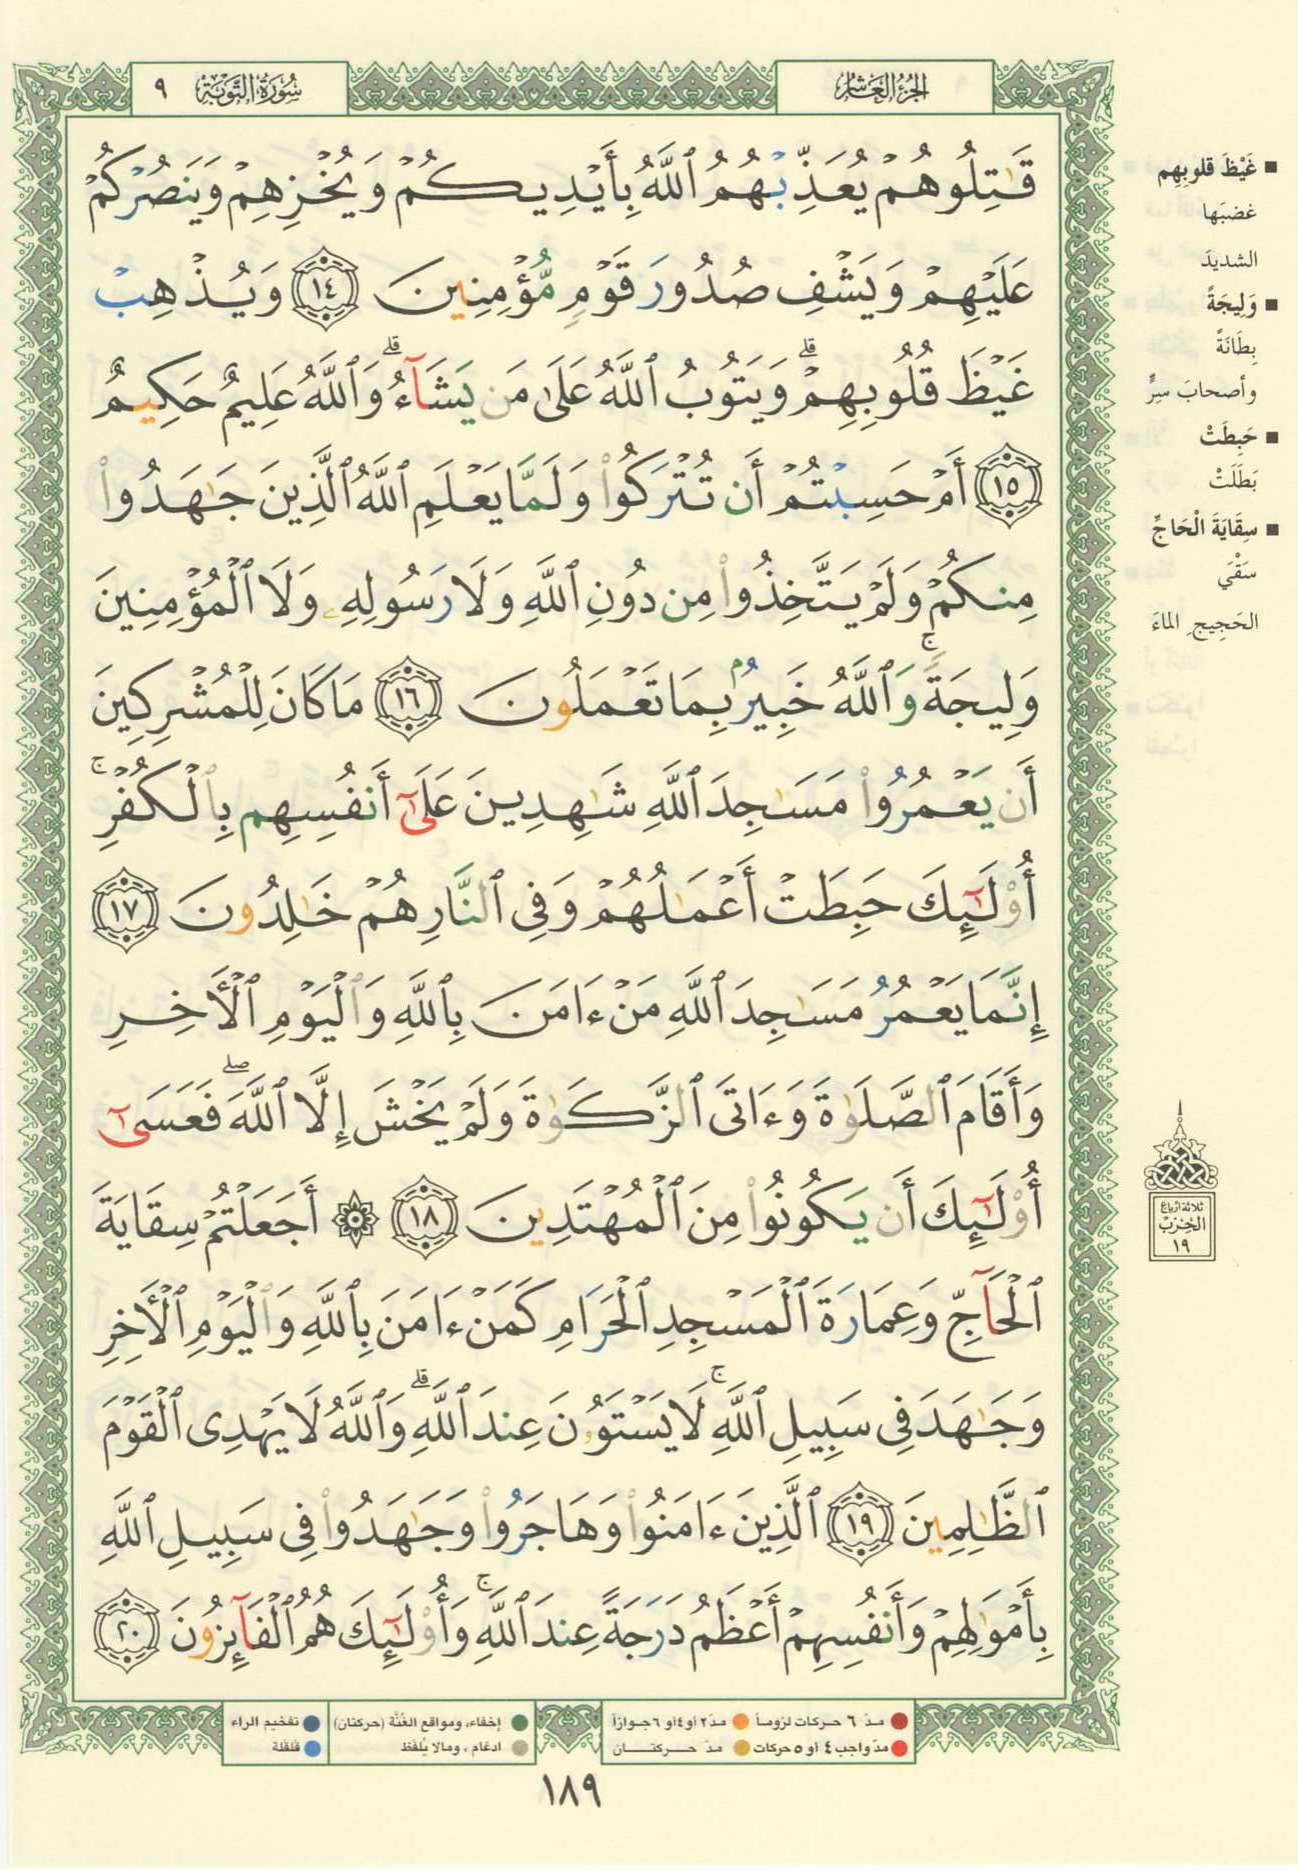 الجزء العاشر
سُورَةُ التَّوْبَةِ ٩
قَٰتِلُوهُمْ يُعَذِّبْهُمُ ٱللَّهُ بِأَيْدِيكُمْ وَيُخْزِهِمْ وَيَنصُرْكُمْ
عَلَيْهِمْ وَيَشْفِ صُدُورَ قَوْمٍ مُّؤْمِنِينَ ١٤ وَيُذْهِبْ
غَيْظَ قُلُوبِهِمْ ۗ وَيَتُوبُ ٱللَّهُ عَلَىٰ مَن يَشَآءُ ۗ وَٱللَّهُ عَلِيمٌ حَكِيمٌ
١٥ أَمْ حَسِبْتُمْ أَن تُتْرَكُوا۟ وَلَمَّا يَعْلَمِ ٱللَّهُ ٱلَّذِينَ جَٰهَدُوا۟
مِنكُمْ وَلَمْ يَتَّخِذُوا۟ مِن دُونِ ٱللَّهِ وَلَا رَسُولِهِۦ وَلَا ٱلْمُؤْمِنِينَ
وَلِيجَةً ۚ وَٱللَّهُ خَبِيرٌۢ بِمَا تَعْمَلُونَ ١٦ مَا كَانَ لِلْمُشْرِكِينَ
أَن يَعْمُرُوا۟ مَسَٰجِدَ ٱللَّهِ شَٰهِدِينَ عَلَىٰٓ أَنفُسِهِم بِٱلْكُفْرِ ۚ
أُو۟لَٰٓئِكَ حَبِطَتْ أَعْمَٰلُهُمْ وَفِى ٱلنَّارِ هُمْ خَٰلِدُونَ ١٧
إِنَّمَا يَعْمُرُ مَسَٰجِدَ ٱللَّهِ مَنْ ءَامَنَ بِٱللَّهِ وَٱلْيَوْمِ ٱلْءَاخِرِ
وَأَقَامَ ٱلصَّلَوٰةَ وَءَاتَى ٱلزَّكَوٰةَ وَلَمْ يَخْشَ إِلَّا ٱللَّهَ ۖ فَعَسَىٰٓ
أُو۟لَٰٓئِكَ أَن يَكُونُوا۟ مِنَ ٱلْمُهْتَدِينَ ١٨ ۞ أَجَعَلْتُمْ سِقَايَةَ
ٱلْحَآجِّ وَعِمَارَةَ ٱلْمَسْجِدِ ٱلْحَرَامِ كَمَنْ ءَامَنَ بِٱللَّهِ وَٱلْيَوْمِ ٱلْءَاخِرِ
وَجَٰهَدَ فِى سَبِيلِ ٱللَّهِ ۚ لَا يَسْتَوُۥنَ عِندَ ٱللَّهِ ۗ وَٱللَّهُ لَا يَهْدِى ٱلْقَوْمَ
ٱلظَّٰلِمِينَ ١٩ ٱلَّذِينَ ءَامَنُوا۟ وَهَاجَرُوا۟ وَجَٰهَدُوا۟ فِى سَبِيلِ ٱللَّهِ
بِأَمْوَٰلِهِمْ وَأَنفُسِهِمْ أَعْظَمُ دَرَجَةً عِندَ ٱللَّهِ ۚ وَأُو۟لَٰٓئِكَ هُمُ ٱلْفَآئِزُونَ ٢٠
■ غَيْظَ قلوبِهِم
غضبَها
الشديدَ
■ وَلِيجَةً
بِطَانَةً
وأصحابَ سِرٍّ
■ حَبِطَتْ
بَطَلَتْ
■ سِقَايَةَ الْحَاجِّ
سَقْيَ
الحَجِيجِ الماءَ
ثلاثة أرباع
الحزب
١٩
مدّ ٦ حركات لزوماً
مدّ ٢ أو ٤ أو ٦ جوازاً
إخفاء، ومواقع الغُنَّة (حركتان)
تفخيم الراء
مدّ واجب ٤ أو ٥ حركات
مدّ حركتان
ادغام، ومالا يُلفَظ
قلقلة
١٨٩